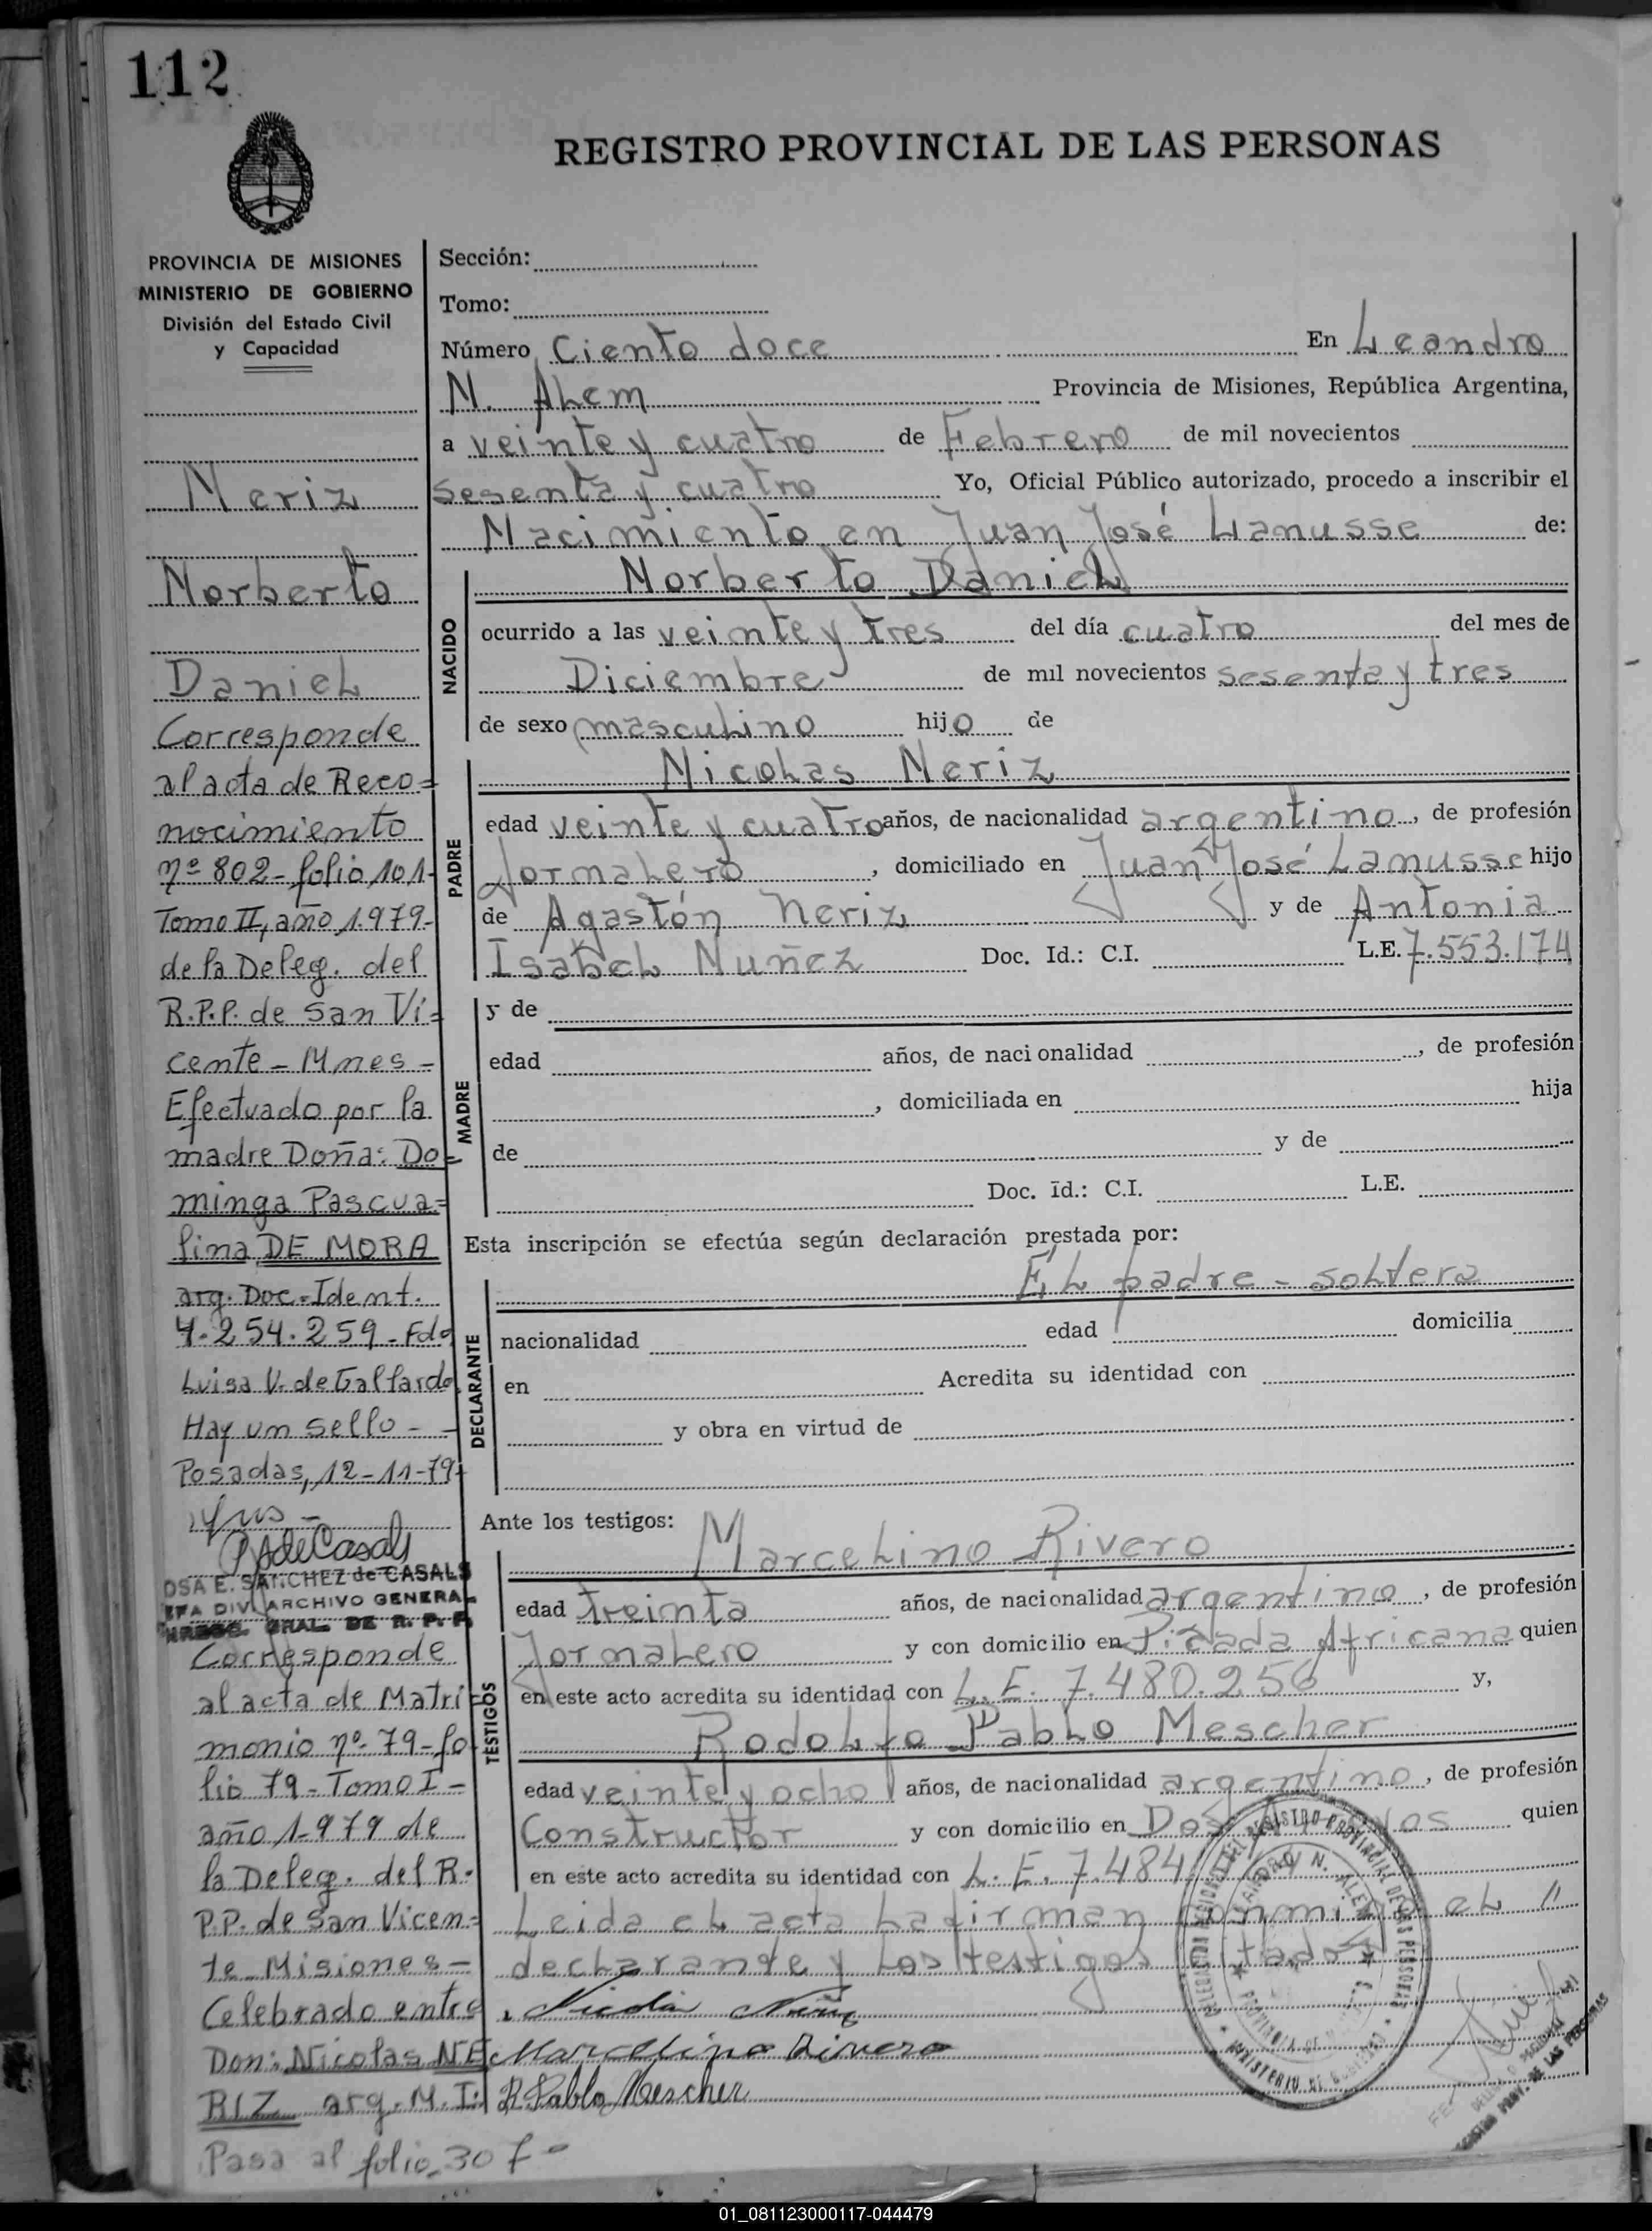 112
REGISTRO PROVINCIAL DE LAS PERSONAS
PROVINCIA DE MISIONES
MINISTERIO DE GOBIERNO
División del Estado Civil
y Capacidad
Neriz
Norberto
Daniel
Corresponde
al acta de Reco=
nocimiento
nº 802- folio 101-
Tomo II, año 1.979-
de la Deleg. del
R.P.P. de San Vi=
cente - Mnes -
Efectuado por la
madre Doña: Do=
minga Pascua=
lina DE MORA
arg. Doc. Ident.
4.254.259 - Fdo
Luisa V. de Gallardo
Hay un sello -
Posadas, 12-11-79-
OSA E. SANCHEZ de CASALS
EFA DIV. ARCHIVO GENERAL
GRAL. DE R. P. P.
Corresponde
al acta de Matri
monio nº 79-fo
lio 79 - Tomo I -
año 1.979 de
la Deleg. del R.
P.P. de San Vicen=
te Misiones -
Celebrado entre
Don: Nicolas NE
RIZ arg. M. I:
Pasa al folio 30 f-
Sección:
Tomo:
Número Ciento doce En Leandro
N. Alem Provincia de Misiones, República Argentina,
a veinte y cuatro de Febrero de mil novecientos
sesenta y cuatro Yo, Oficial Público autorizado, procedo a inscribir el
Nacimiento en Juan José Lanusse de:
NACIDO
Norberto Daniel
ocurrido a las veinte y tres del día cuatro del mes de
Diciembre de mil novecientos sesenta y tres
de sexo masculino hijo de
PADRE
Nicolas Neriz
edad veinte y cuatro años, de nacionalidad argentino, de profesión
Jornalero, domiciliado en Juan José Lanusse hijo
de Agastón Neriz y de Antonia
Isabel Nuñez Doc. Id.: C.I. L.E. 7.553.174
MADRE
y de
edad años, de nacionalidad , de profesión
, domiciliada en hija
de y de
Doc. Id.: C.I. L.E.
Esta inscripción se efectúa según declaración prestada por:
DECLARANTE
El padre - soltera
nacionalidad edad domicilia
en Acredita su identidad con
y obra en virtud de
Ante los testigos:
TESTIGOS
Marcelino Rivero
edad treinta años, de nacionalidad argentino, de profesión
Jornalero y con domicilio en Picada Africana quien
en este acto acredita su identidad con L.E. 7.480.256 y,
Rodolfo Pablo Mescher
edad veinte y ocho años, de nacionalidad argentino, de profesión
Constructor y con domicilio en Dos quien
en este acto acredita su identidad con L.E. 7.484
Leida el acta la firman conmigo el "
declarante y los testigos citados
Marcelino Rivero
R. Pablo Mescher
01_081123000117-044479